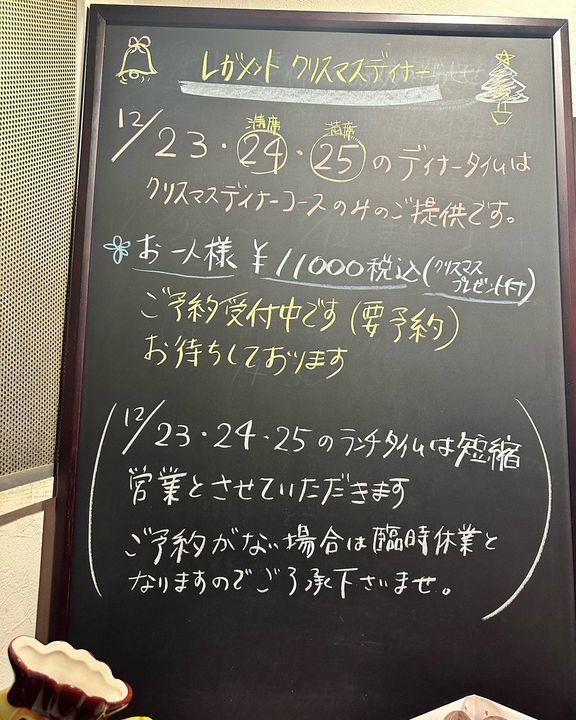 レガメント クリスマスディナー
満席 満席
12/23・24・25のディナータイムは
クリスマスディナーコースのみのご提供です。
お一人様 ¥11000税込(クリスマスプレゼント付)
ご予約受付中です(要予約)
お待ちしております
(12/23・24・25のランチタイムは短縮
営業とさせていただきます
ご予約がない場合は臨時休業と
なりますのでご了承下さいませ。)